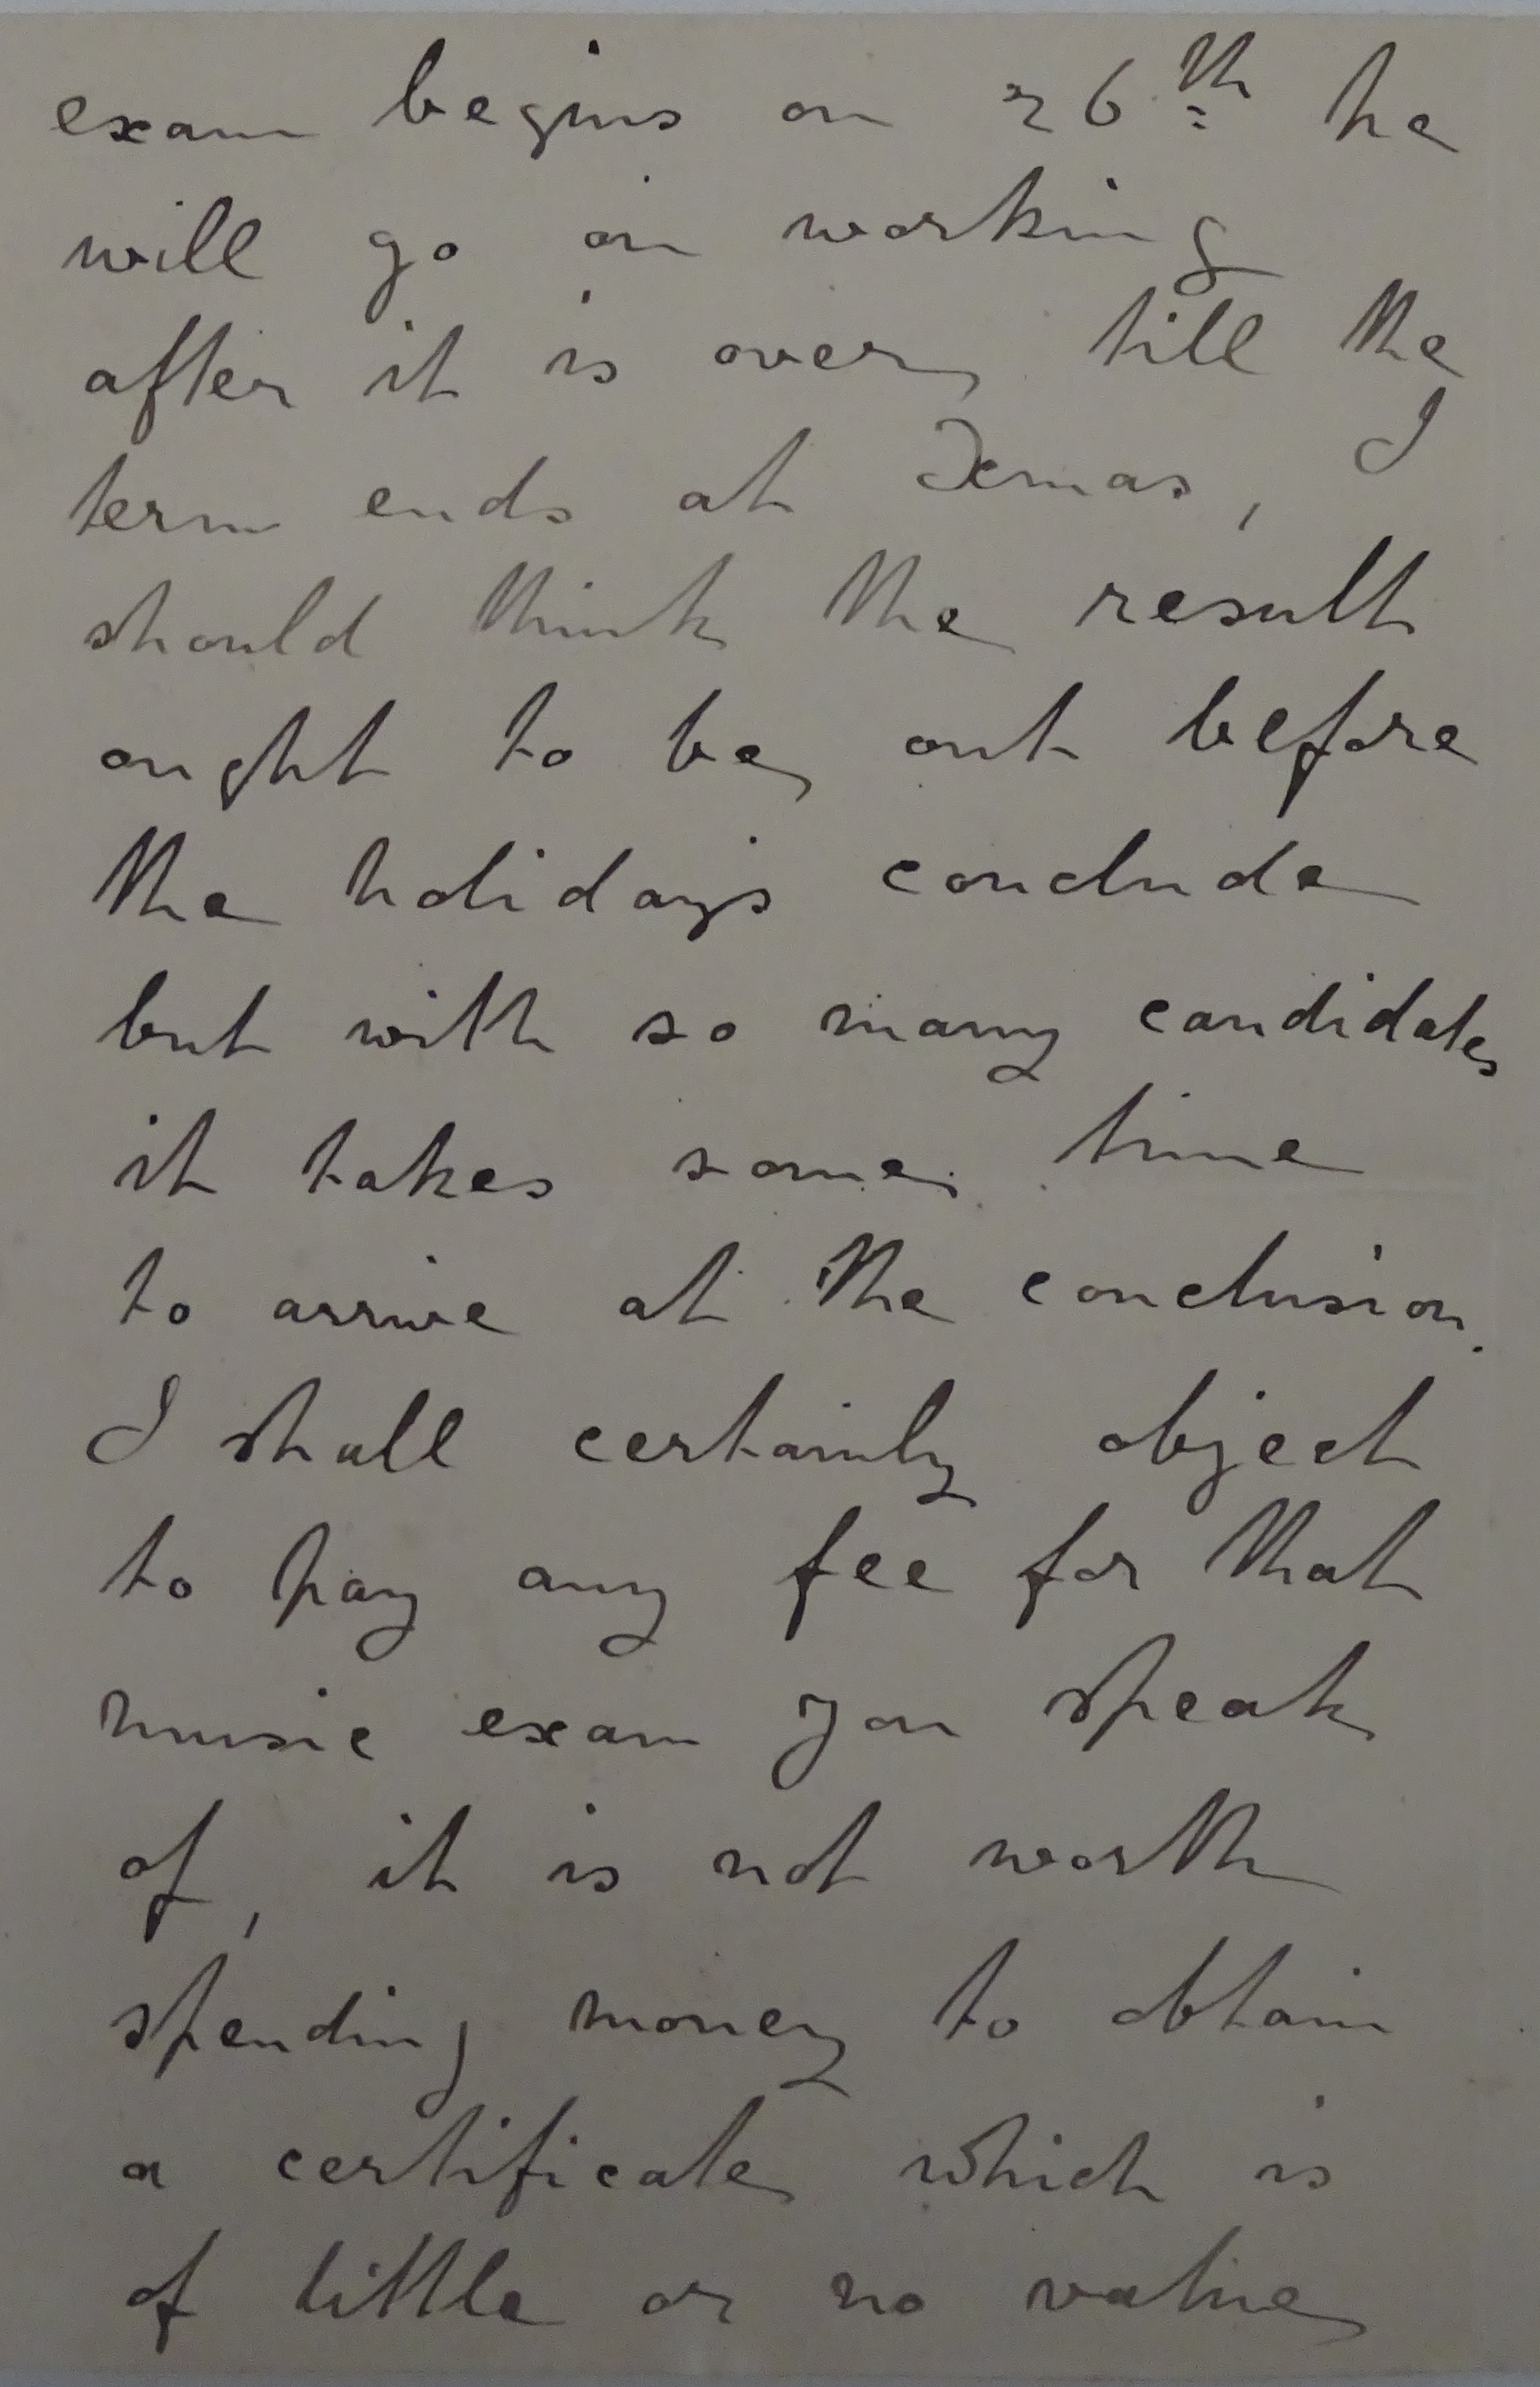 exam begins on 26th he
will go on working
after it is over till the
term ends at Xmas, I
should think the result
ought to be out before
the holidays conclude
but with so many candidates
it takes some time
to arrive at the conclusion.
I shall certainly object
to pay any fee for that
music exam you speak
of, it is not worth
spending money to obtain
a certificate which is
of little or no value